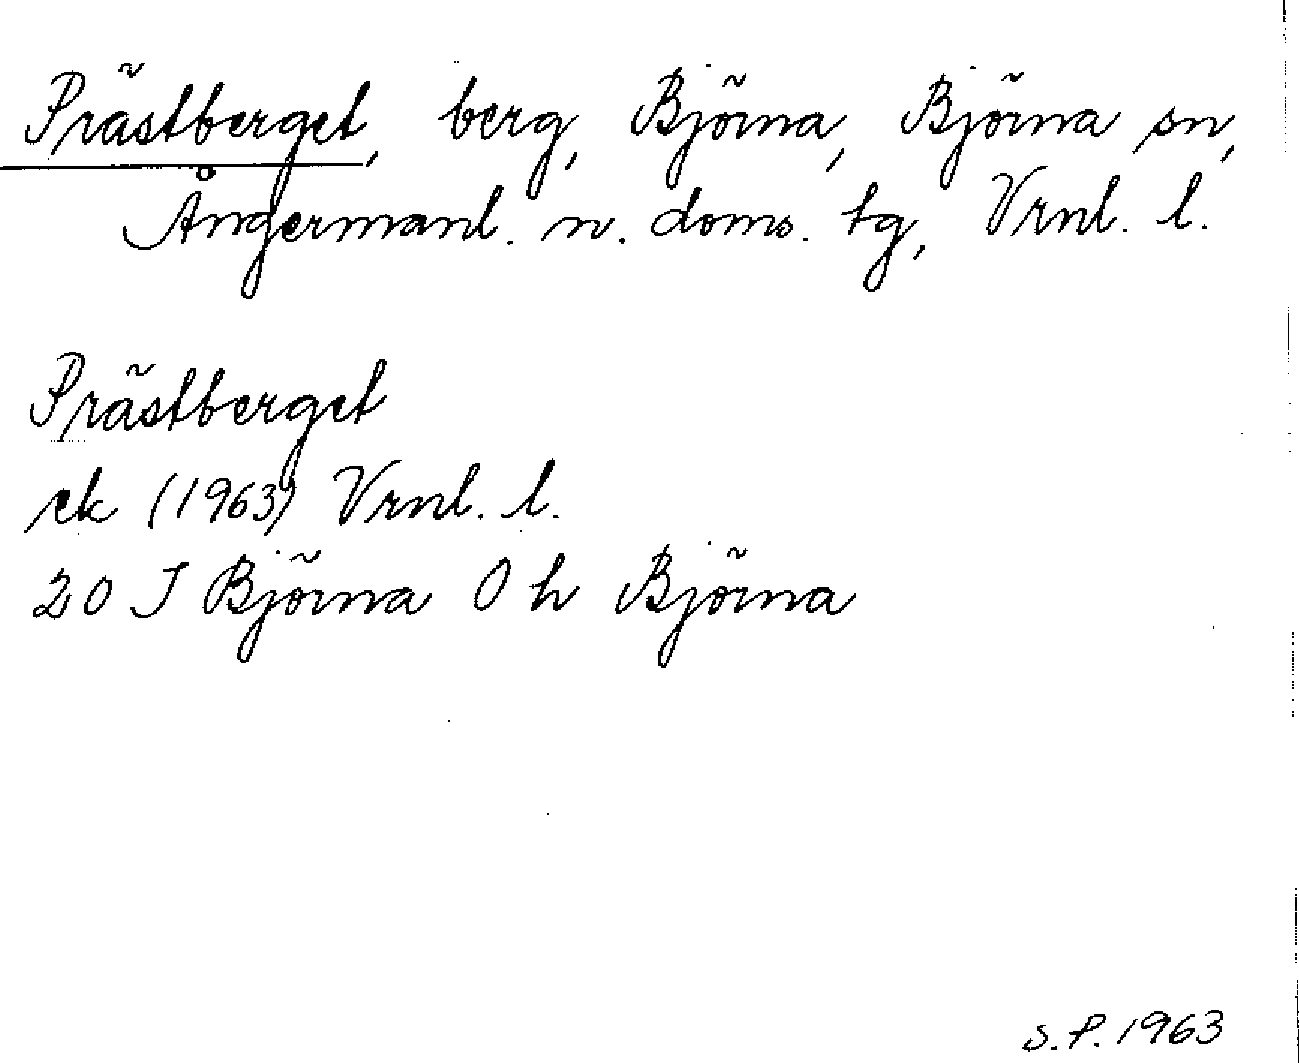 Prästberget, berg, Björna, Björna sn,
Ångermanl. n. doms. tg, Vrnl. l.
Prästberget
ek (1963) Vrnl. l.
20 J Björna 0 h Björna
S.P. 1963